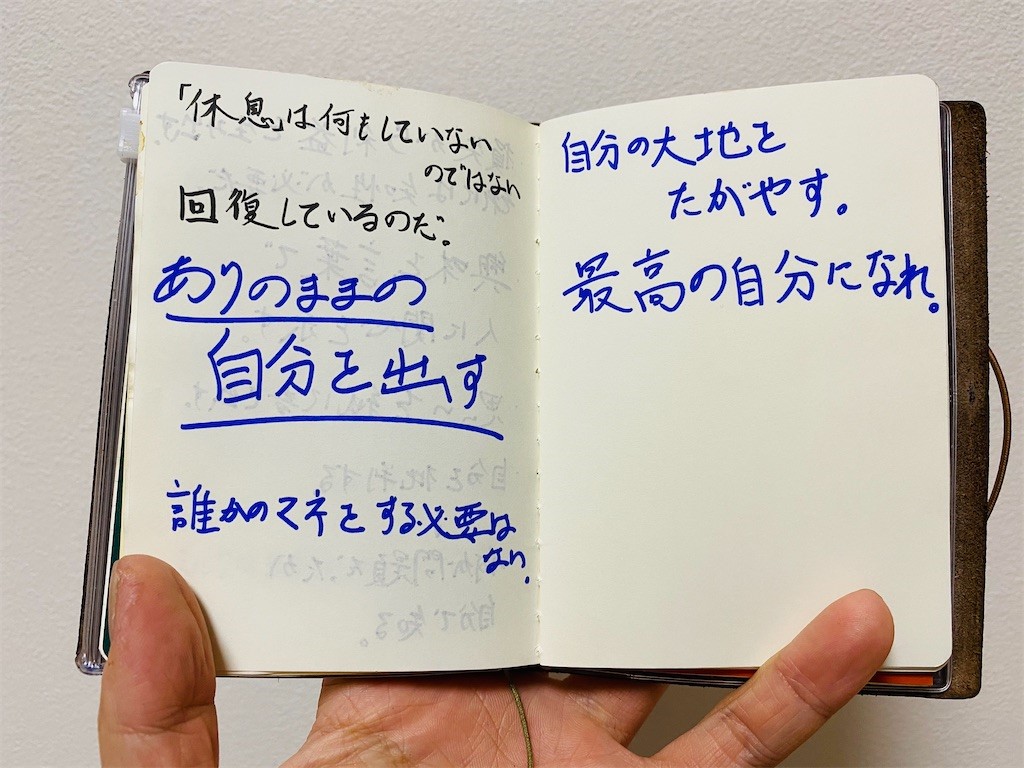 「休息」は何もしていない
のではない
回復しているのだ。
ありのままの
自分を出す
誰かのマネをする必要は
ない.
自分の大地を
たがやす。
最高の自分になれ。